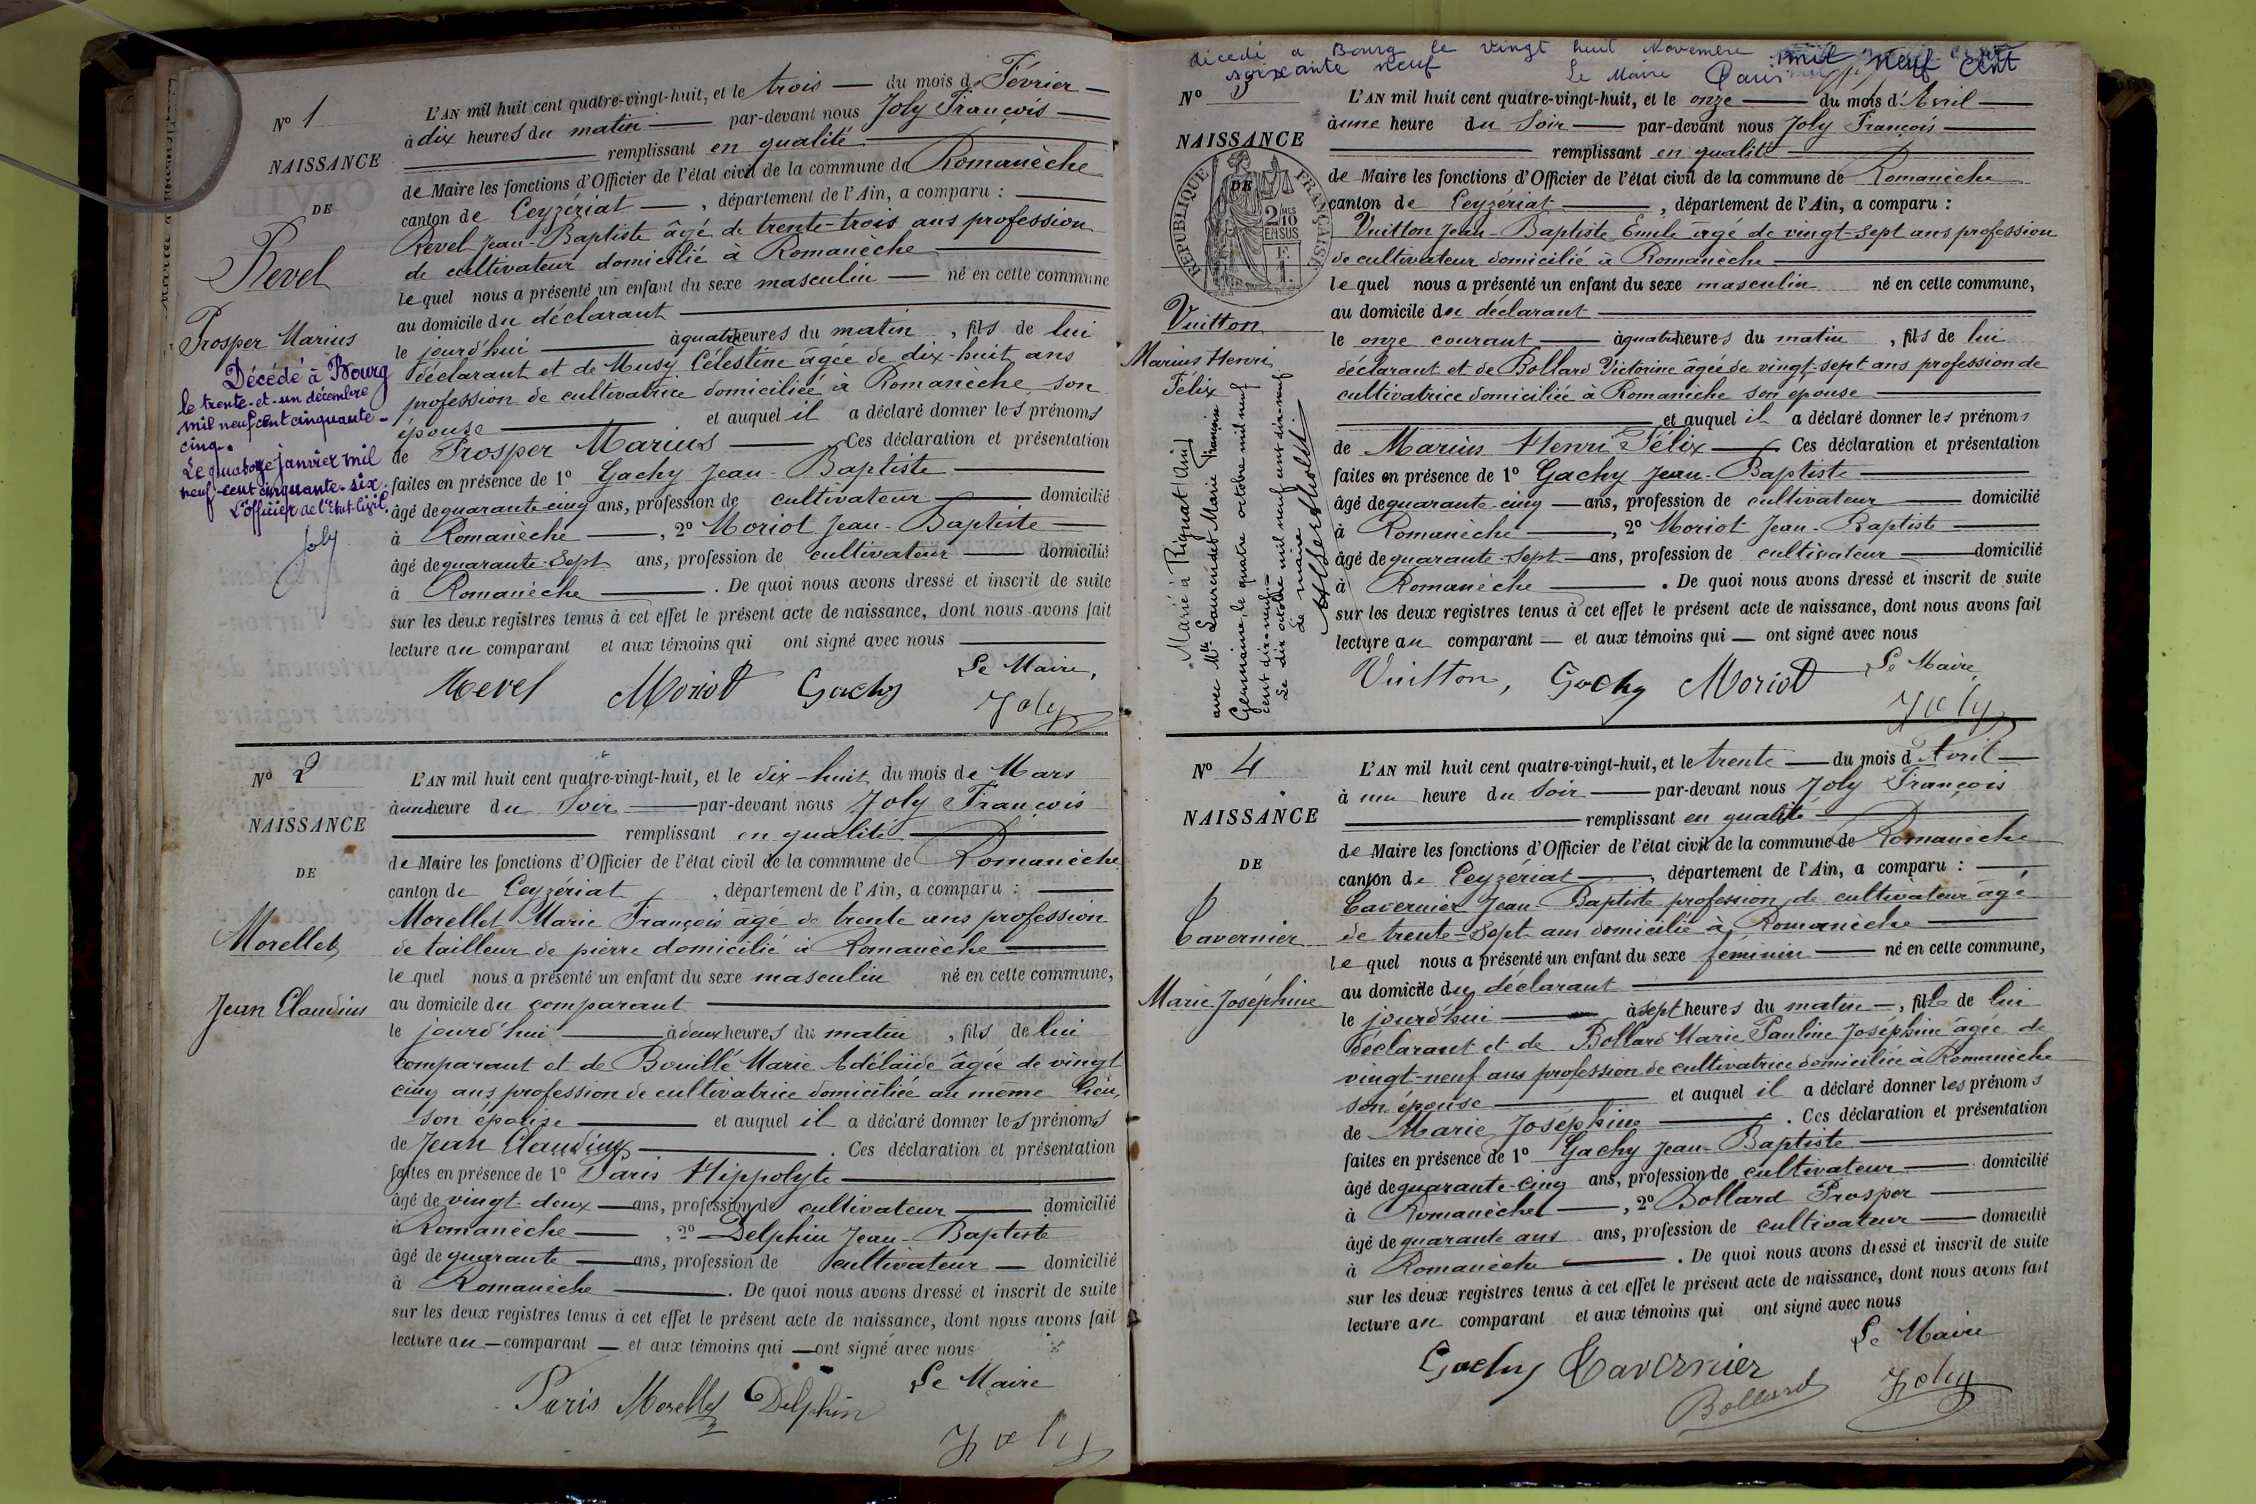 Nº 1
NAISSANCE
DE
Revel
Prosper Marius
Décédé à Bourg
le trente-et-un décembre
mil neuf cent cinquante-
cinq.
Le quatorze janvier mil
neuf-cent cinquante-six.
L'officier de l'Etat-Civil,
Joly
L'AN mil huit cent quatre-vingt-huit, et le trois du mois de Février
à dix heures du matin par-devant nous Joly François
remplissant en qualité
de Maire les fonctions d'Officier de l'état civil de la commune de Romanèche
canton de Ceyzériat, département de l'Ain, a comparu :
Revel Jean-Baptiste âgé de trente-trois ans profession
de cultivateur domicilié à Romanèche
lequel nous a présenté un enfant du sexe masculin né en cette commune
au domicile du déclarant
le jourd'hui à quatre heures du matin, fils de lui
déclarant et de Musy Célestine âgée de dix-huit ans
profession de cultivatrice domiciliée à Romanèche son
épouse et auquel il a déclaré donner les prénoms
de Prosper Marius Ces déclaration et présentation
faites en présence de 1º Gachy Jean-Baptiste
âgé de quarante-cinq ans, profession de cultivateur domicilié
à Romanèche, 2º Moriot Jean-Baptiste
âgé de quarante-sept ans, profession de cultivateur domicilié
à Romanèche. De quoi nous avons dressé et inscrit de suite
sur les deux registres tenus à cet effet le présent acte de naissance, dont nous avons fait
lecture au comparant et aux témoins qui ont signé avec nous
Le Maire,
Revel Moriot Gachy
Joly
Nº 2
NAISSANCE
DE
Morellet
Jean Claudius
L'AN mil huit cent quatre-vingt-huit, et le dix-huit du mois de Mars
à une heure du soir par-devant nous Joly François
remplissant en qualité
de Maire les fonctions d'Officier de l'état civil de la commune de Romanèche
canton de Ceyzériat, département de l'Ain, a comparu :
Morellet Marie François âgé de trente ans profession
de tailleur de pierre domicilié à Romanèche
lequel nous a présenté un enfant du sexe masculin né en cette commune,
au domicile du comparant
le jourd'hui à deux heures du matin, fils de lui
comparant et de Bouillé Marie Adélaïde âgée de vingt
cinq ans profession de cultivatrice domiciliée au même lieu,
son épouse et auquel il a déclaré donner les prénoms
de Jean Claudius. Ces déclaration et présentation
faites en présence de 1º Paris Hippolyte
âgé de vingt deux ans, profession de cultivateur domicilié
à Romanèche, 2º Delphin Jean-Baptiste
âgé de quarante ans, profession de cultivateur domicilié
à Romanèche. De quoi nous avons dressé et inscrit de suite
sur les deux registres tenus à cet effet le présent acte de naissance, dont nous avons fait
lecture au comparant et aux témoins qui ont signé avec nous
Le Maire
Paris Morellet Delphin
Joly
décédé à Bourg le vingt huit Novembre mil neuf cent
soixante neuf Le Maire Paris
Nº 3
NAISSANCE
DE
RÉPUBLIQUE FRANÇAISE
2/10 MES
EN SUS
Vuitton
Marius Henri
Félix
Marié à Rignat (Ain)
avec Mlle Laurendet Marie Françoise
Germaine, le quatre octobre mil neuf
cent dix-neuf.
Le dix octobre mil neuf cent dix-neuf
Le maire
L'AN mil huit cent quatre-vingt-huit, et le onze du mois d'Avril
à une heure du soir par-devant nous Joly François
remplissant en qualité
de Maire les fonctions d'Officier de l'état civil de la commune de Romanèche
canton de Ceyzériat, département de l'Ain, a comparu :
Vuitton Jean-Baptiste Emile âgé de vingt-sept ans profession
de cultivateur domicilié à Romanèche
lequel nous a présenté un enfant du sexe masculin né en cette commune,
au domicile du déclarant
le onze courant à quatre heures du matin, fils de lui
déclarant et de Bollard Victorine âgée de vingt-sept ans profession de
cultivatrice domiciliée à Romanèche son épouse
et auquel il a déclaré donner les prénoms
de Marius Henri Félix. Ces déclaration et présentation
faites en présence de 1º Gachy Jean-Baptiste
âgé de quarante-cinq ans, profession de cultivateur domicilié
à Romanèche, 2º Moriot Jean-Baptiste
âgé de quarante-sept ans, profession de cultivateur domicilié
à Romanèche. De quoi nous avons dressé et inscrit de suite
sur les deux registres tenus à cet effet le présent acte de naissance, dont nous avons fait
lecture au comparant et aux témoins qui ont signé avec nous
Vuitton, Gachy Moriot Le Maire,
Joly
Nº 4
NAISSANCE
DE
Cavernier
Marie Joséphine
L'AN mil huit cent quatre-vingt-huit, et le trente du mois d'Avril
à une heure du soir par-devant nous Joly François
remplissant en qualité
de Maire les fonctions d'Officier de l'état civil de la commune de Romanèche
canton de Ceyzériat, département de l'Ain, a comparu :
Cavernier Jean-Baptiste profession de cultivateur âgé
de trente-sept ans domicilié à Romanèche
lequel nous a présenté un enfant du sexe féminin né en cette commune,
au domicile du déclarant
le jourd'hui à sept heures du matin, fille de lui
déclarant et de Bollard Marie Pauline Joséphine âgée de
vingt-neuf ans profession de cultivatrice domiciliée à Romanèche
son épouse et auquel il a déclaré donner les prénoms
de Marie Joséphine. Ces déclaration et présentation
faites en présence de 1º Gachy Jean-Baptiste
âgé de quarante-cinq ans, profession de cultivateur domicilié
à Romanèche, 2º Bollard Prosper
âgé de quarante ans ans, profession de cultivateur domicilié
à Romanèche. De quoi nous avons dressé et inscrit de suite
sur les deux registres tenus à cet effet le présent acte de naissance, dont nous avons fait
lecture au comparant et aux témoins qui ont signé avec nous
Le Maire
Gachy Cavernier
Bollard Joly